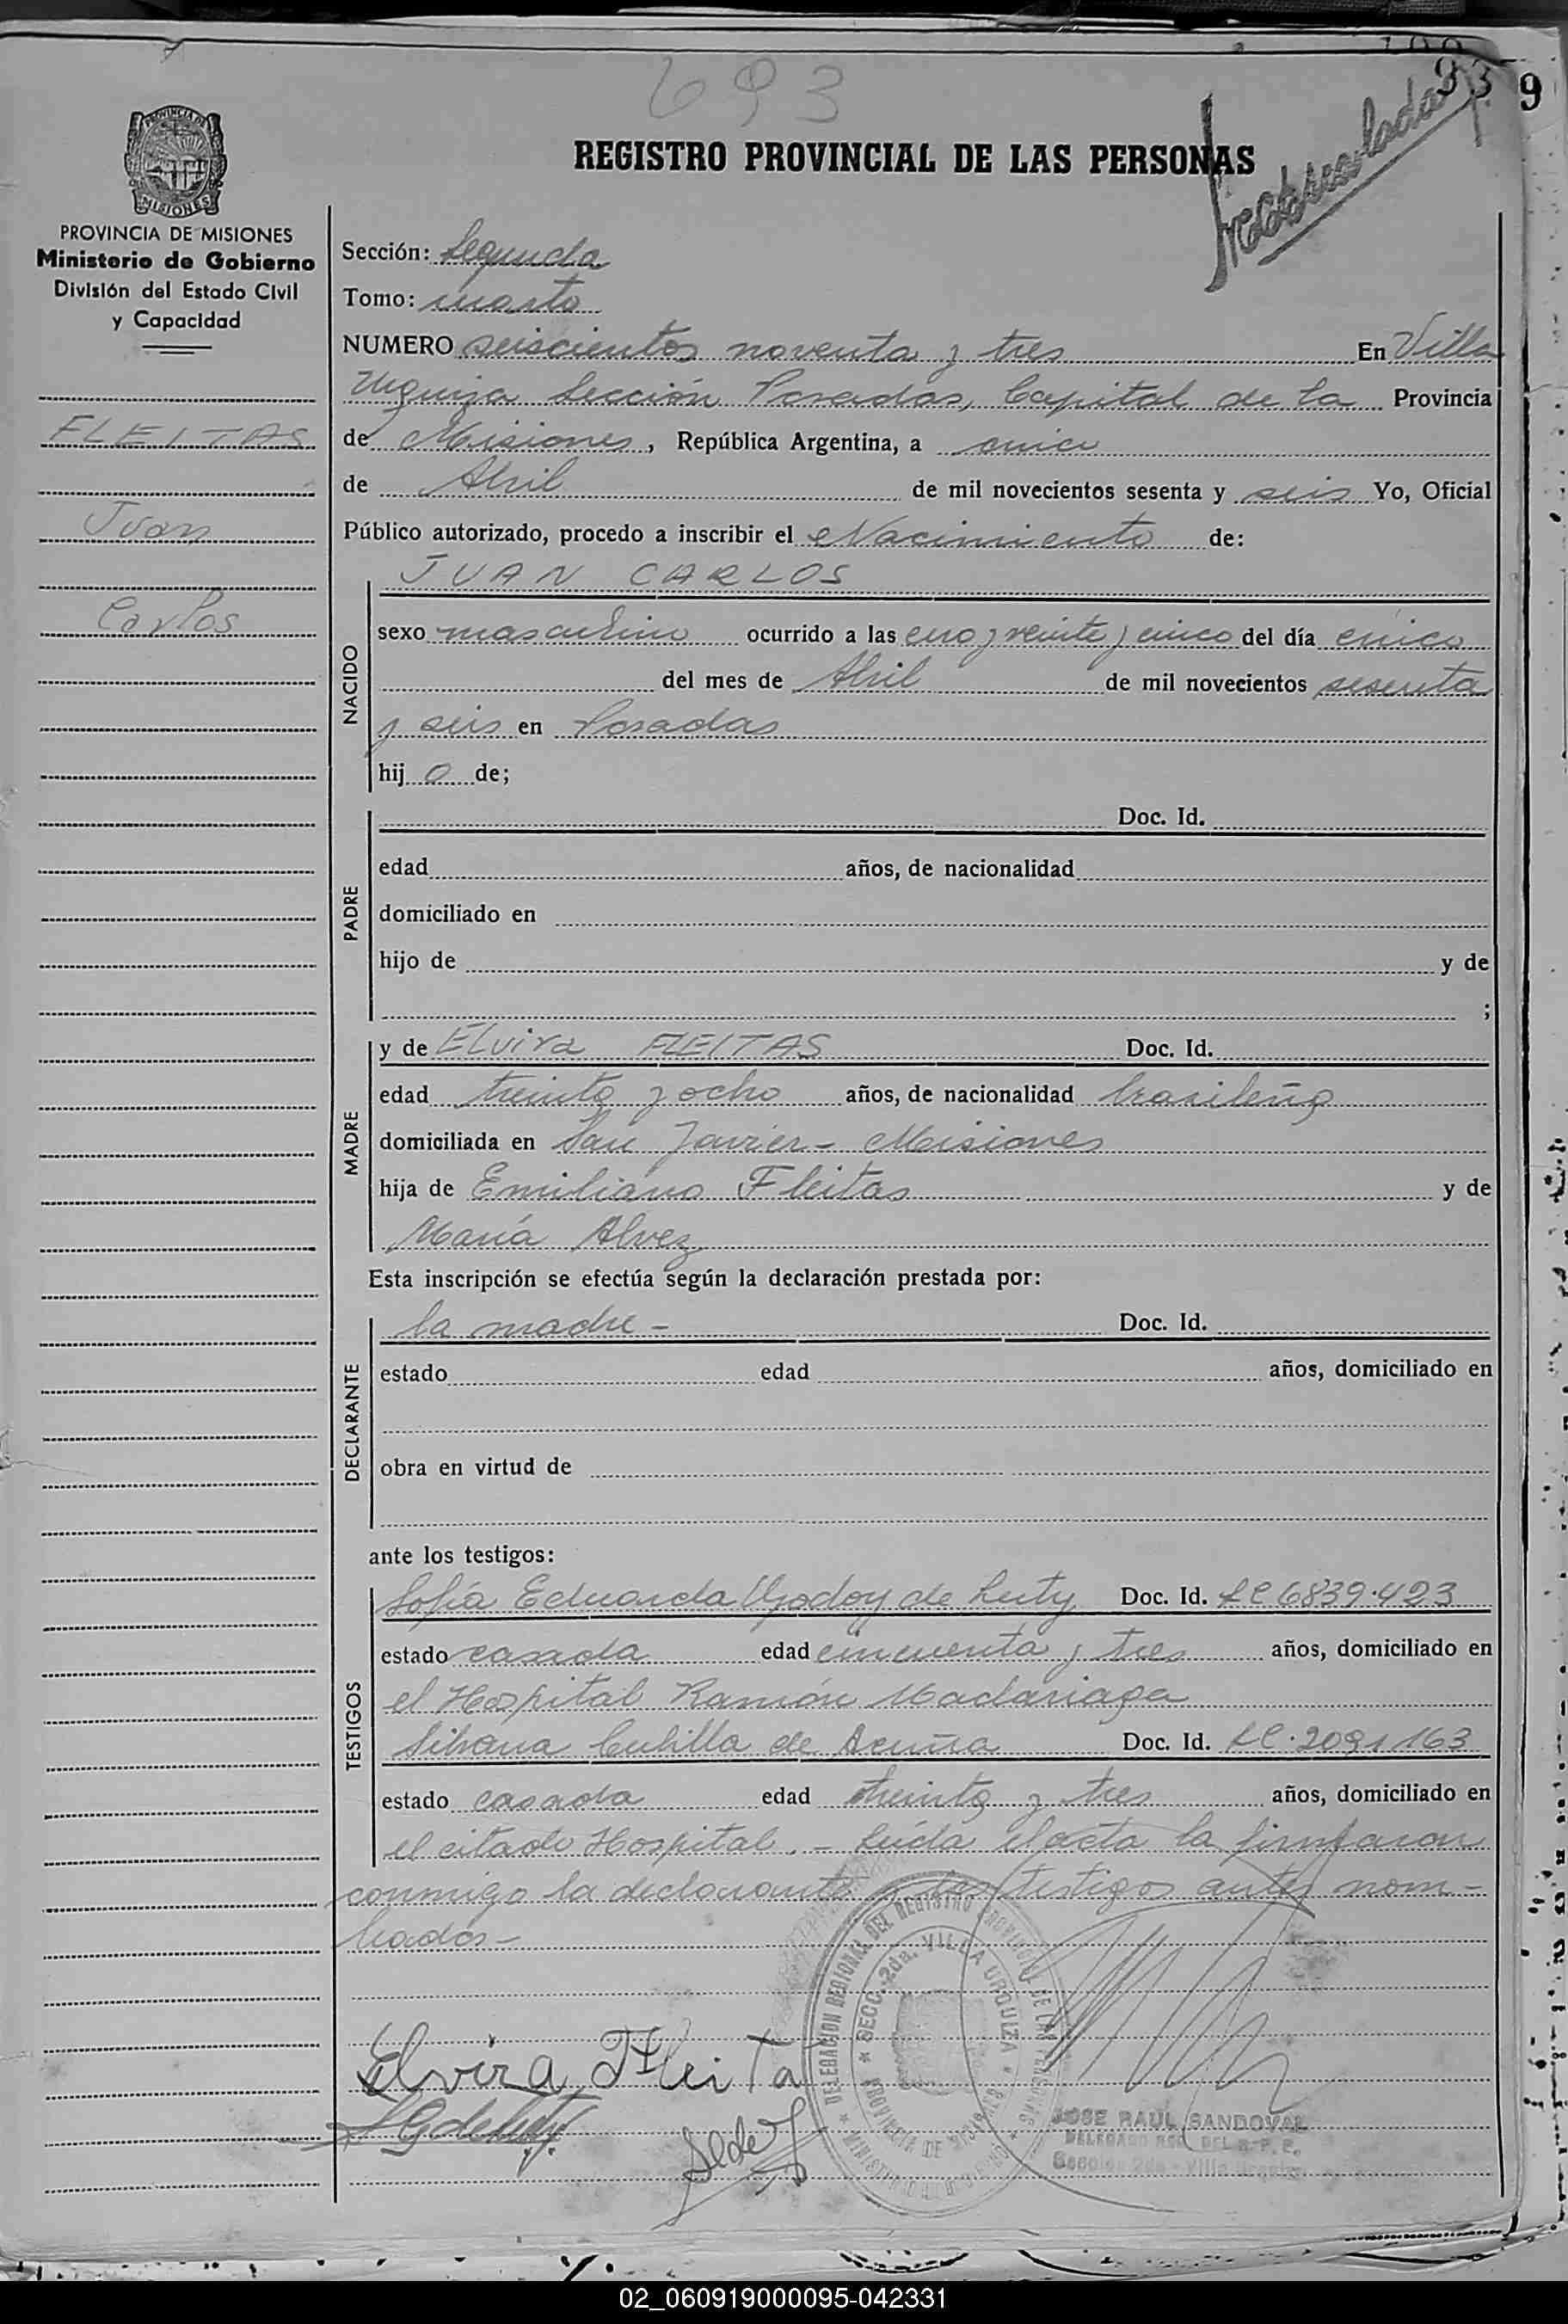 693
339
REGISTRO PROVINCIAL DE LAS PERSONAS
PROVINCIA DE MISIONES
Ministerio de Gobierno
División del Estado Civil
y Capacidad
FLEITAS
Juan
Carlos
Sección: Segunda
Tomo: cuarto
NUMERO seiscientos noventa y tres En Villa
Urquiza Sección Posadas, Capital de la Provincia
de Misiones, República Argentina, a cinco
de Abril de mil novecientos sesenta y seis Yo, Oficial
Público autorizado, procedo a inscribir el Nacimiento de:
JUAN CARLOS
NACIDO
sexo masculino ocurrido a las cero y veinte y cinco del día cinco
del mes de Abril de mil novecientos sesenta
y seis en Posadas
hijo de;
PADRE
Doc. Id.
edad años, de nacionalidad
domiciliado en
hijo de y de
;
MADRE
y de Elvira FLEITAS Doc. Id.
edad treinta y ocho años, de nacionalidad brasileña
domiciliada en San Javier - Misiones
hija de Emiliano Fleitas y de
María Alvez
Esta inscripción se efectúa según la declaración prestada por:
DECLARANTE
la madre - Doc. Id.
estado edad años, domiciliado en
obra en virtud de
ante los testigos:
TESTIGOS
Sofía Eduarda Godoy de Doc. Id. LC 6839.423
estado casada edad cincuenta y tres años, domiciliado en
el Hospital Ramón Madariaga
Silvana Cubilla de Acuña Doc. Id. LC. 2091163
estado casada edad treinta y tres años, domiciliado en
el citado Hospital. - Leída el acta la firmaron
conmigo la declarante y los testigos antes nom-
brados -
DELEGACION REGIONAL DEL REGISTRO PROVINCIAL DE LAS PERSONAS
SECC. 2da. VILLA URQUIZA
PROVINCIA DE MISIONES
Elvira Fleita
JOSE RAUL SANDOVAL
DELEGADO REG. DEL R. P. P.
Sección 2da - Villa Urquiza
02_060919000095-042331